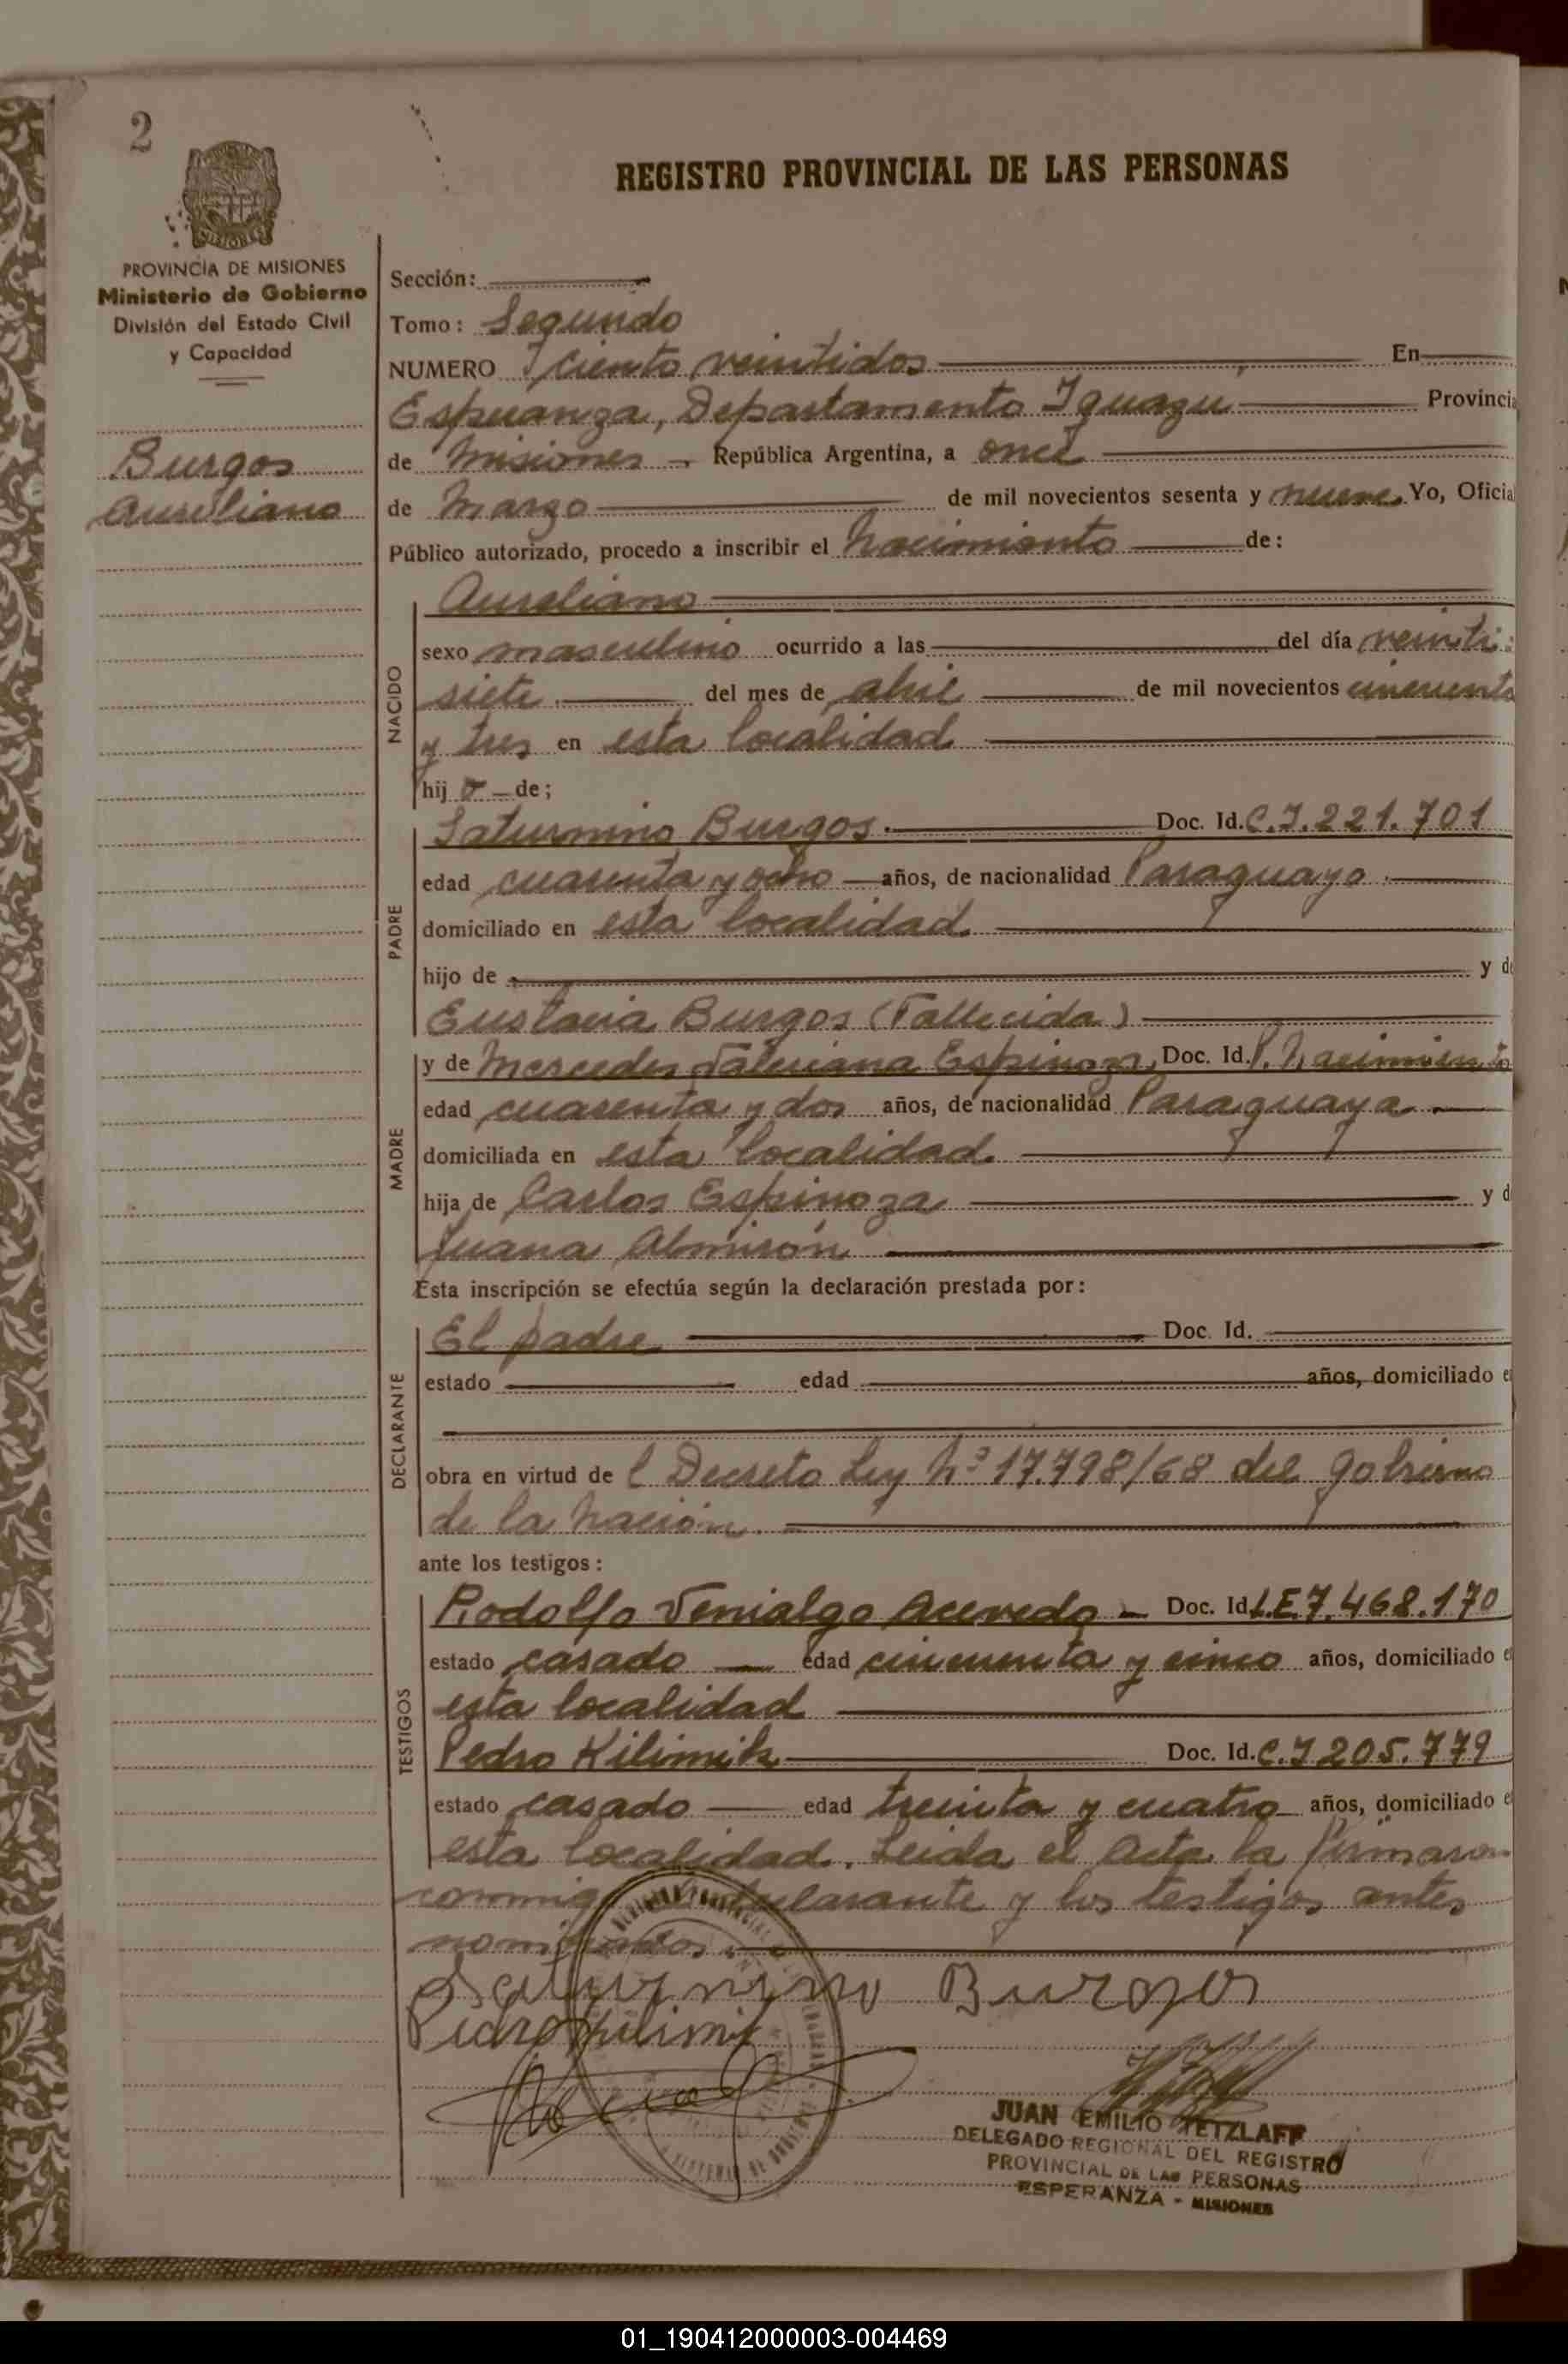 2
REGISTRO PROVINCIAL DE LAS PERSONAS
PROVINCIA DE MISIONES
Ministerio de Gobierno
División del Estado Civil
y Capacidad
Burgos
Aureliano
Sección:
Tomo: Segundo
NUMERO ciento veintidos En
Esperanza, Departamento Iguazú Provincia
de Misiones República Argentina, a once
de Marzo de mil novecientos sesenta y nueve Yo, Oficial
Público autorizado, procedo a inscribir el Nacimiento de:
NACIDO
Aureliano
sexo masculino ocurrido a las del día veinti
siete del mes de abril de mil novecientos cincuenta
y tres en esta localidad
hij o de;
PADRE
Saturnino Burgos. Doc. Id. C.I.221.701
edad cuarenta y ocho años, de nacionalidad Paraguayo.
domiciliado en esta localidad.
hijo de y de
Eustacia Burgos (Fallecida)
MADRE
y de Mercedes Valeriana Espinoza Doc. Id. P. Nacimiento
edad cuarenta y dos años, de nacionalidad Paraguaya
domiciliada en esta localidad.
hija de Carlos Espinoza y d
Juana Almirón
Esta inscripción se efectúa según la declaración prestada por:
DECLARANTE
El padre Doc. Id.
estado edad años, domiciliado e
obra en virtud de l Decreto Ley Nº 17.798/68 del gobierno
de la Nación.
ante los testigos:
TESTIGOS
Rodolfo Venialgo Acevedo Doc. Id L.E.7.468.170
estado casado edad cincuenta y cinco años, domiciliado e
esta localidad
Pedro Kilimik Doc. Id. C.I 205.779
estado casado edad treinta y cuatro años, domiciliado e
esta localidad. Leida el Acta la firmaron
conmigo declarante y los testigos antes
nombrados
Saturnino Burgos
Pedro Kilimik
JUAN EMILIO TETZLAFF
DELEGADO REGIONAL DEL REGISTRO
PROVINCIAL DE LAS PERSONAS
ESPERANZA - MISIONES
01_190412000003-004469